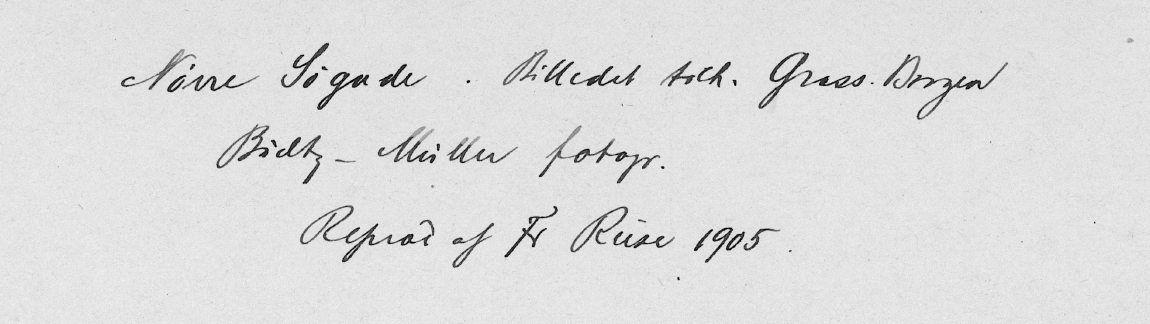 Nörre Sögade. Billedet tilh. Gross. Bergen
Budtz-Müller fotogr.
Reprod af Fr Riise 1905.